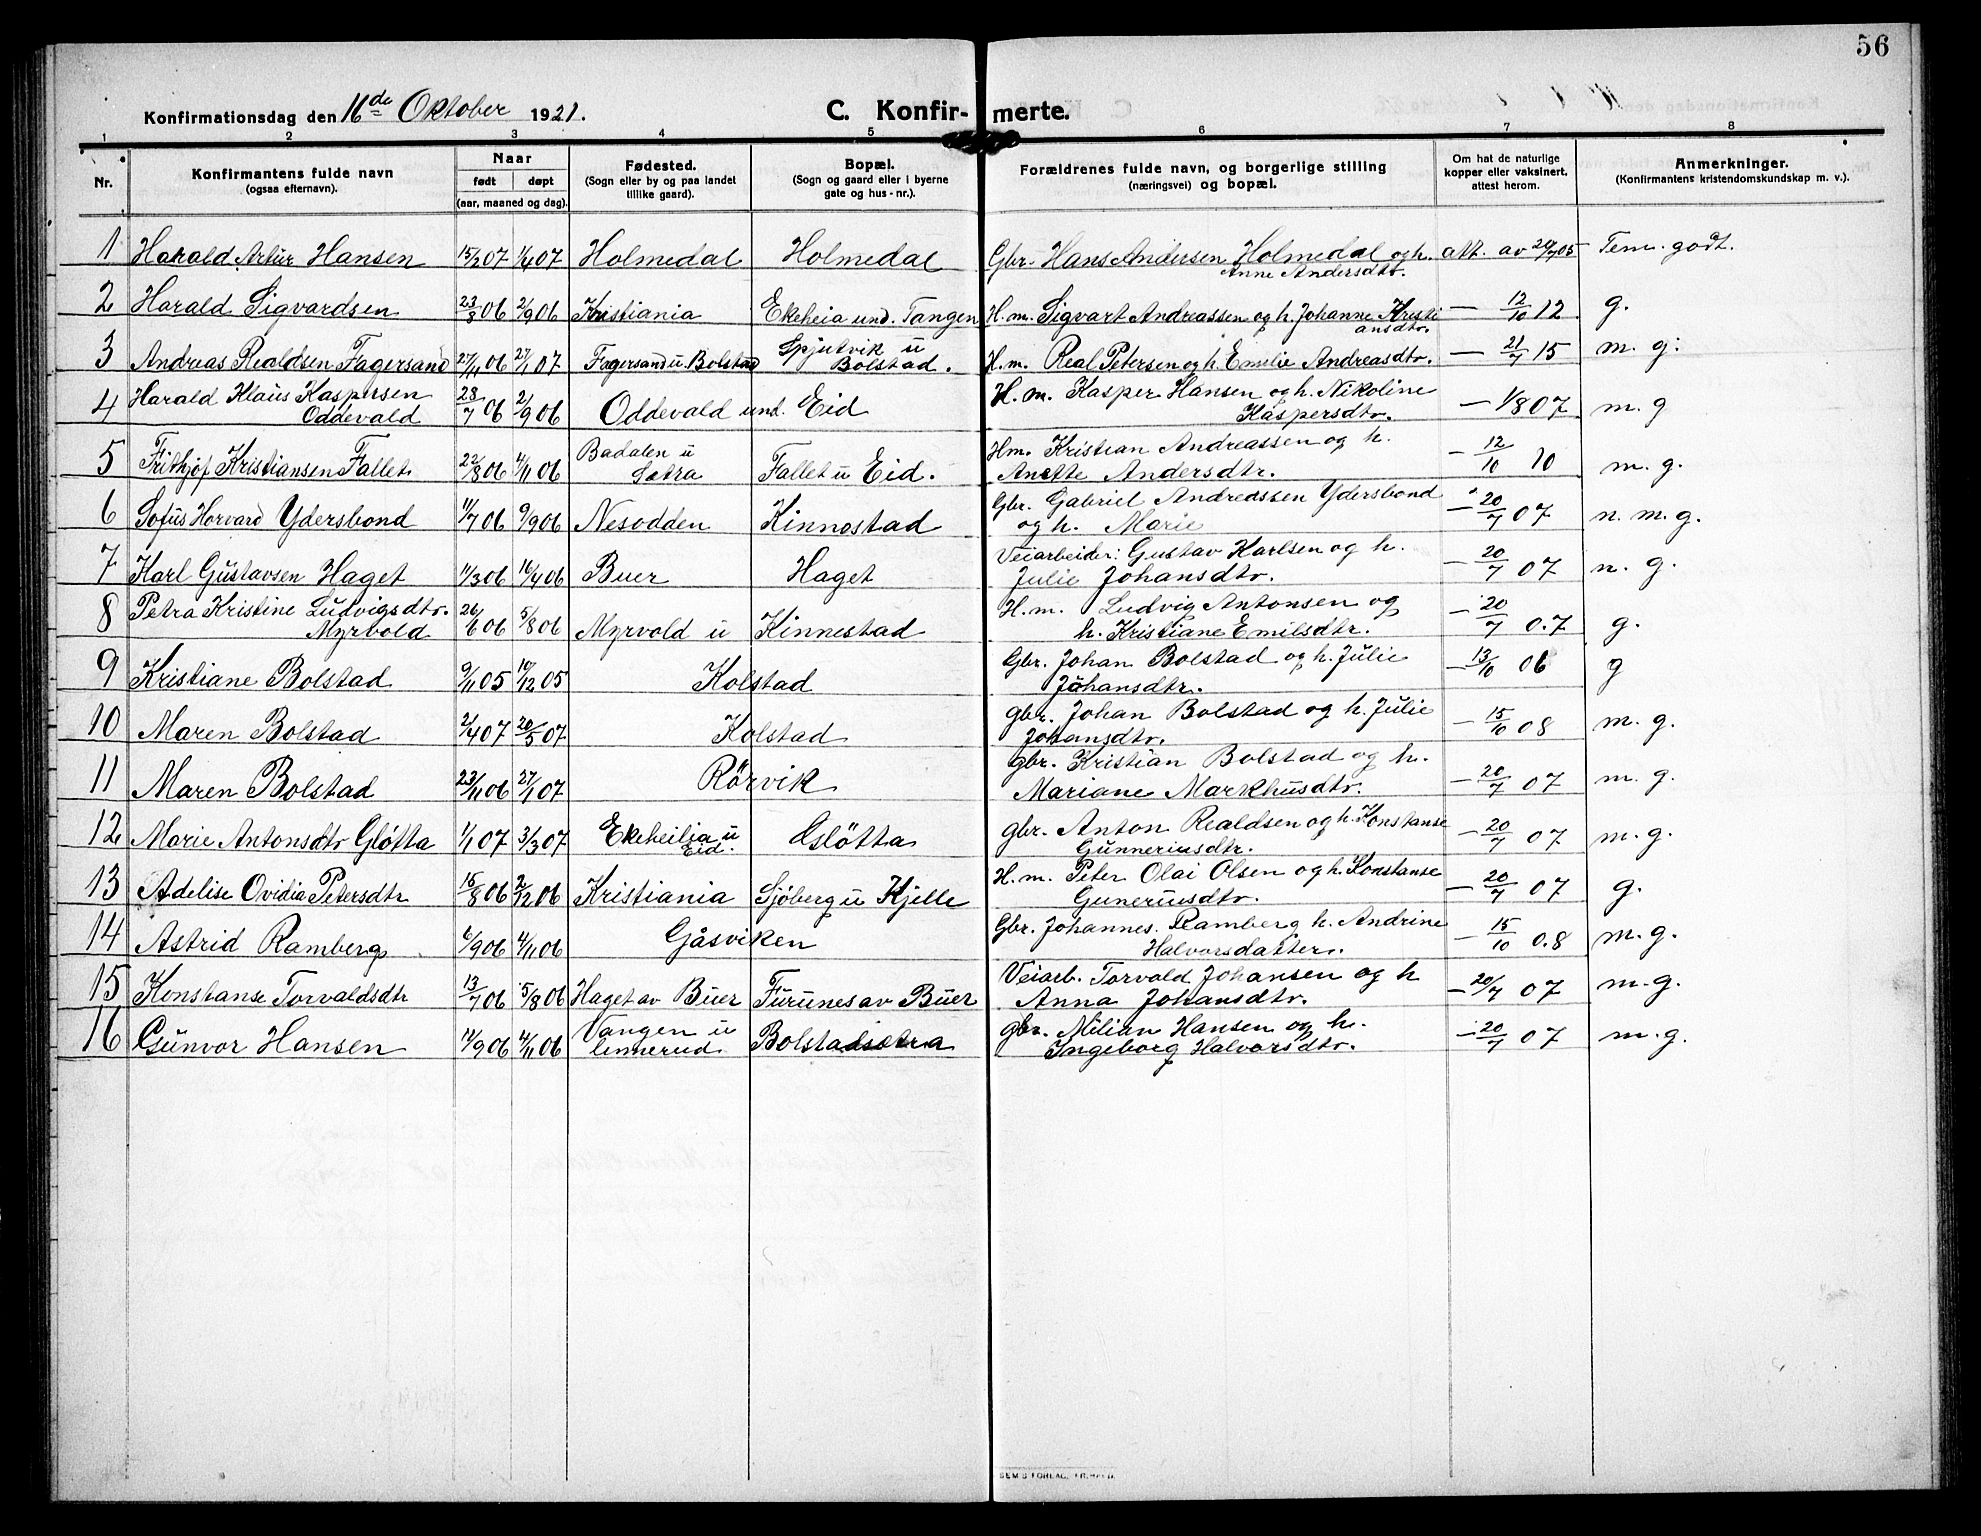 56
Konfirmationsdag den 16de Oktober 1921. C. Konfir- merte.
1 2 3 4 5 6 7 8
Nr. Konfirmantens fulde navn (ogsaa efternavn). Naar født døpt (aar, maaned og dag). Fødested. (Sogn eller by og paa landet tillike gaard). Bopæl. (Sogn og gaard eller i byerne gate og hus-nr.). Forældrenes fulde navn, og borgerlige stilling (næringsvei) og bopæl. Om hat de naturlige kopper eller vaksinert, attest herom. Anmerkninger. (Konfirmantens kristendomskundskap m. v.).
1 Harald Artur Hansen 15/2 07 1/4 07 Holmedal Holmedal Gbr. Hans Andersen Holmedal og h. att. av 20/7 05 Tem. godt.
Anne Andersdtr.
2 Harald Sigvardsen 23/8 06 2/9 06 Kristiania Ekeheia und. Tangen H.m. Sigvart Andreassen og h. Johanne Kristi — 12/10 12 g.
ansdtr.
3 Andreas Realdsen Fagersand 27/11 06 27/1 07 Fagersand u Bolstad Spjutvik u
Bolstad. H.m. Real Petersen og h. Emelie Andreasdtr. — 21/7 15 m. g.
4 Harald Klaus Kaspersen
Oddevald 28/7 06 2/9 06 Oddevald und. Eid H.m. Kasper Hansen og h. Nikoline
Kaspersdtr. — 1/8 07 m. g
5 Frithjof Kristiansen Fallet 22/8 06 4/11 06 Badalen u
Sætra Fallet u Eid. Hm. Kristian Andreassen og h.
Anette Andersdtr. — 12/10 10 m. g.
6 Sofus Horvard Ydersbond 11/7 06 9/9 06 Nesodden Kinnestad Gbr. Gabriel Andreassen Ydersbond
og h. Marie — 20/7 07 n. m. g.
7 Karl Gustavsen Haget 11/3 06 16/4 06 Buer Haget Veiarbeider: Gustav Karlsen og h.
Julie Johansdtr. — 20/7 07 n. g.
8 Petra Kristine Ludvigsdtr.
Myrvold 26/6 06 5/8 06 Myrvold u Kinnestad H.m. Ludvig Antonsen og
h. Kristiane Emilsdtr. — 20/7 0.7 g.
9 Kristiane Bolstad 9/11 05 10/12 05 Kolstad Gbr. Johan Bolstad og h. Julie
Johansdtr. — 13/10 06 g
10 Maren Bolstad 2/4 07 20/5 07 Kolstad gbr. Johan Bolstad og h. Julie
Johansdtr. — 15/10 08 m. g.
11 Maren Bolstad 23/11 06 27/1 07 Rörvik gbr. Kristian Bolstad og h.
Mariane Markhusdtr. — 20/7 07 m. g.
12 Marie Antonsdtr Gløtta 1/1 07 3/3 07 Ekeheilia u
Eid. Gsløtta gbr. Anton Realdsen og h. Konstanse
Gunneriusdtr. — 20/7 07 m. g.
13 Adelise Ovidia Petersdtr 15/8 06 2/12 06 Kristiania Sjöberg u Kjelle H.m. Peter Olai Olsen og h. Konstanse
Guneriusdtr. — 20/7 07 g.
14 Astrid Ramberg 6/9 06 4/11 06 Gåsviken Gbr. Johannes. Ramberg h. Andrine
Halvorsdatter. — 15/10 0.8 m. g.
15 Konstanse Torvaldsdtr 13/7 06 5/8 06 Haget av Buer Furunes av Buer Veiarb. Torvald Johansen og h
Anna Johansdtr. — 20/7 07 m. g.
16 Gunvor Hansen 11/9 06 4/11 06 Vangen u
linnerud Bolstadsætra gbr. Milian Hansen og h.
Ingeborg Halvorsdtr. — 20/7 07 m. g.
SEM'S FORLAG, FR.HALD.